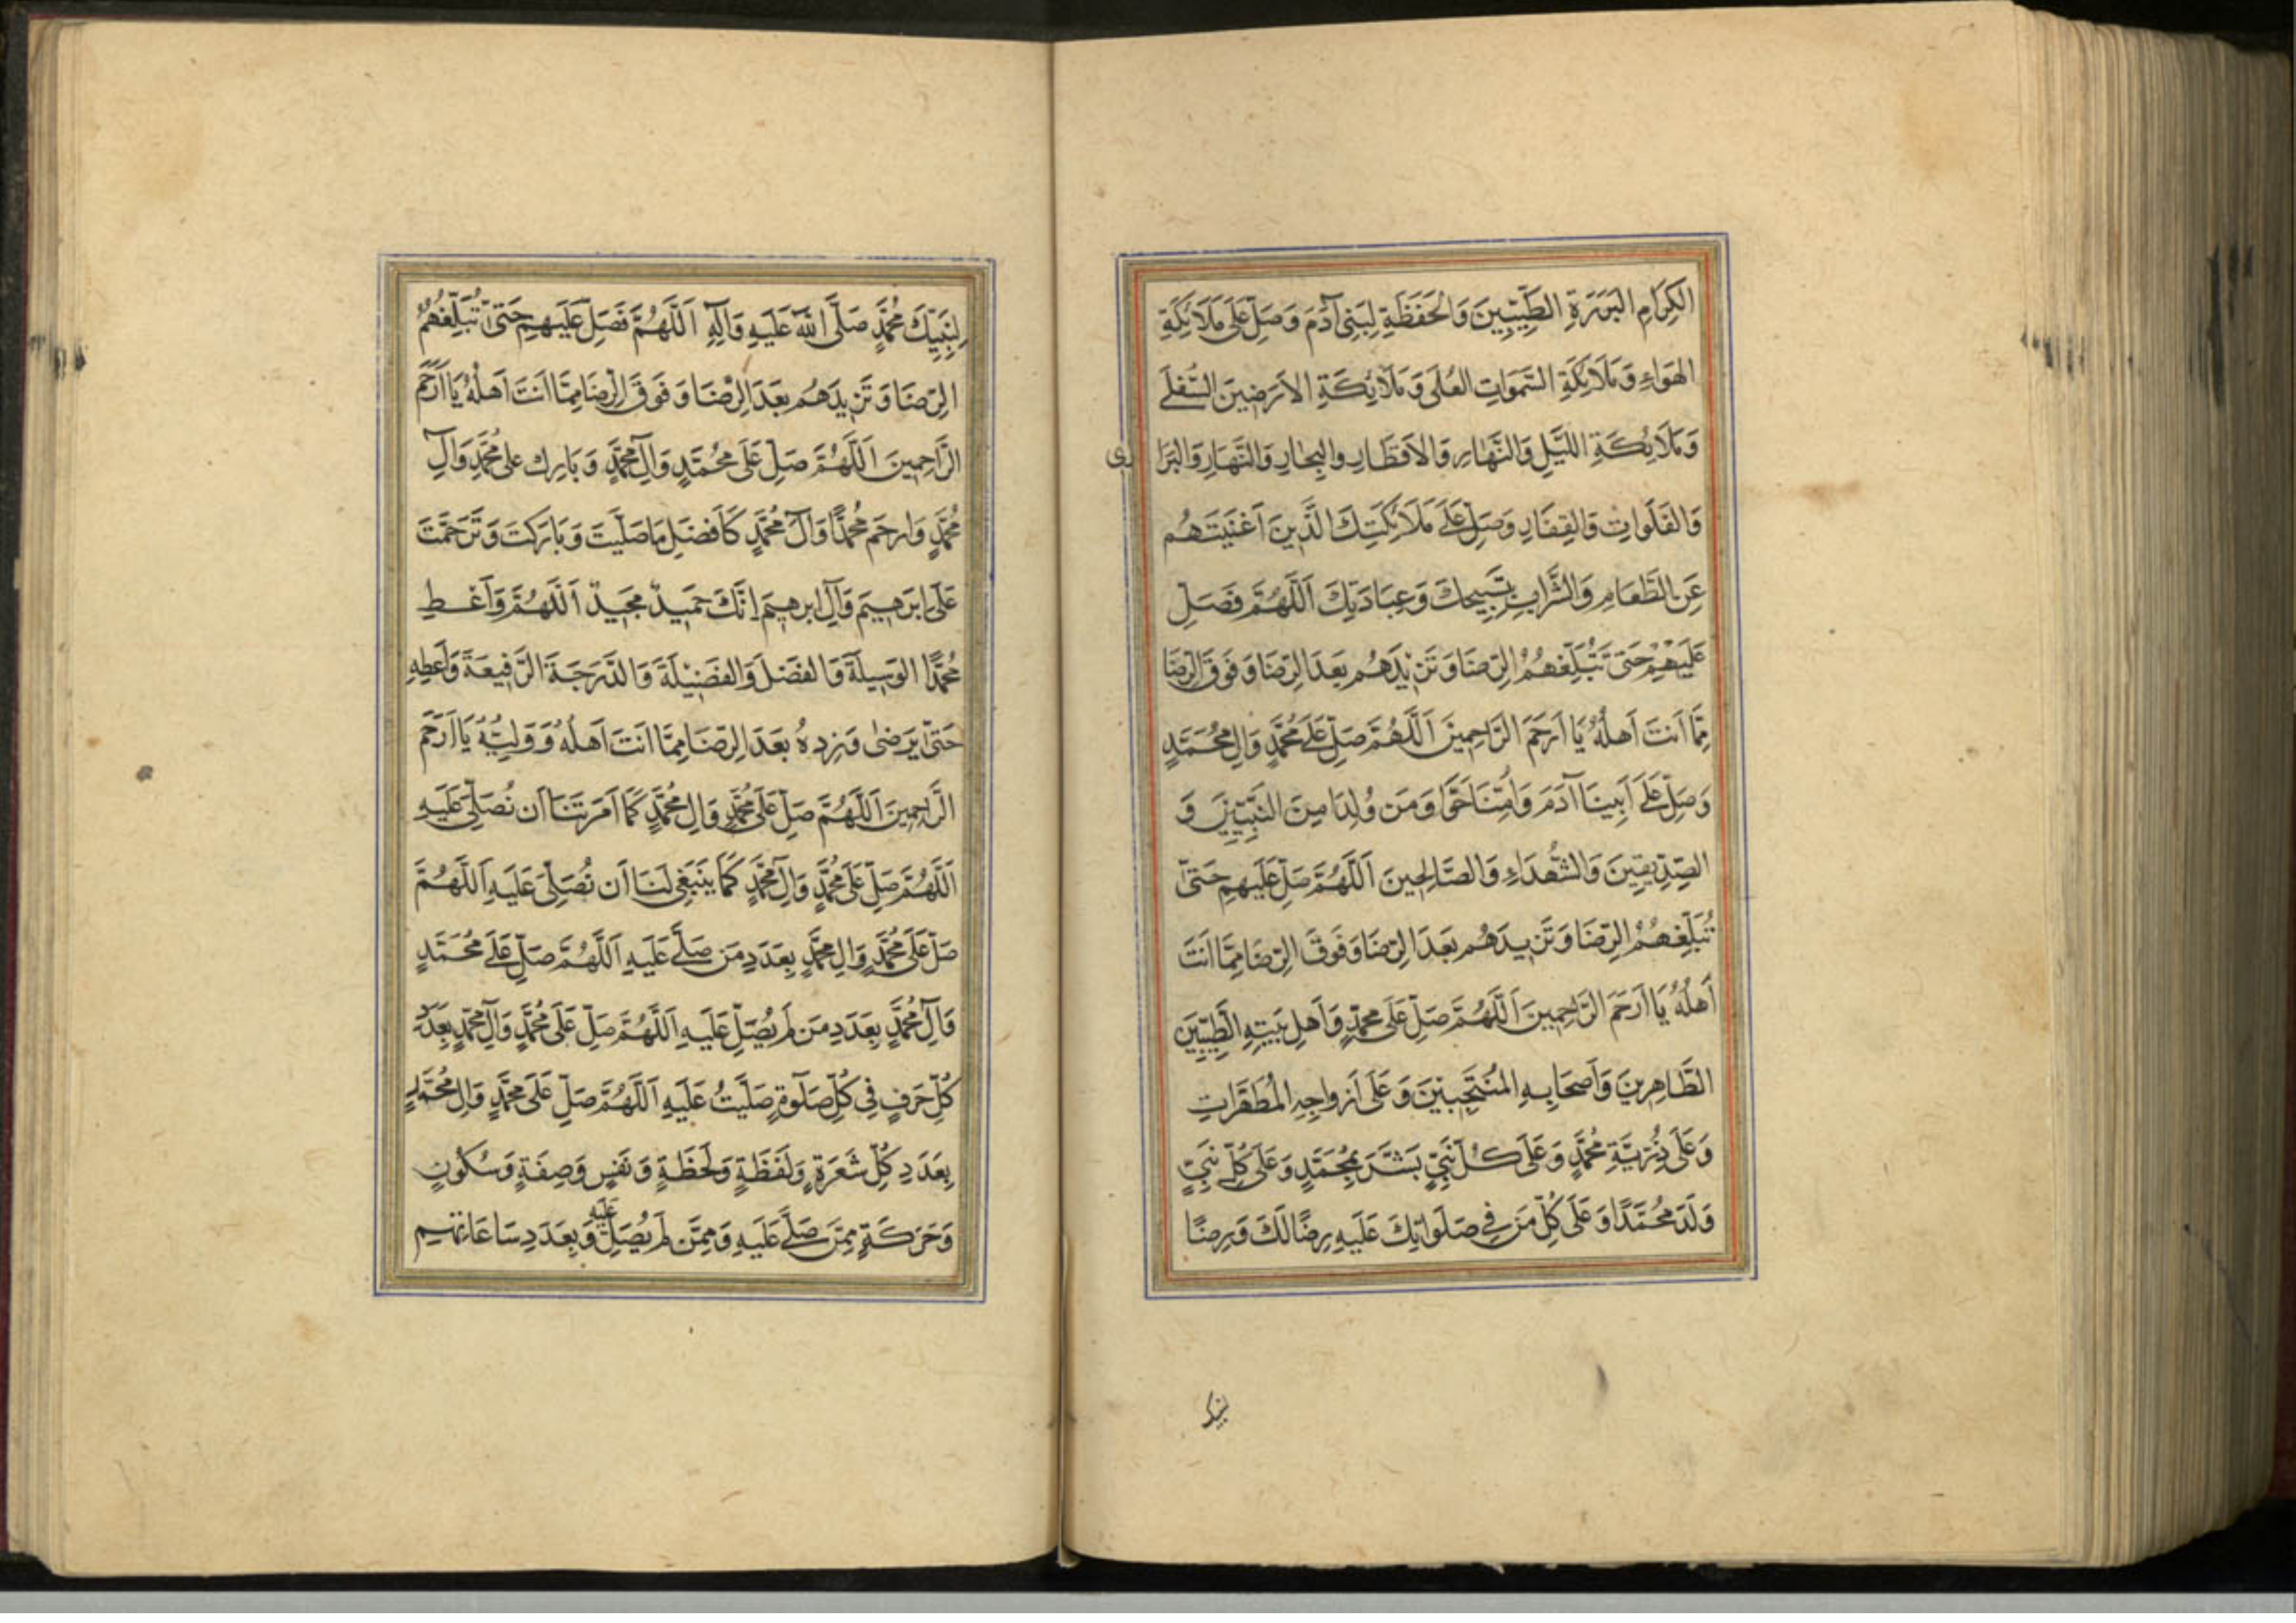 الكِرَامِ البَرَرَةِ الطَّيِّبِينَ وَالحَفَظَةِ لِبَنِي آدَمَ وَصَلِّ عَلَى مَلَائِكَةِ
الهَوَاءِ وَمَلَائِكَةِ السَّمَوَاتِ العُلَى وَمَلَائِكَةِ الاَرَضِينَ السُّفلَى
وَمَلَائِكَةِ اللَّيلِ وَالنَّهَارِ وَالاَقطَارِ والبِحَارِ وَالنَّهَارِ وَالبَرَارِى
وَالفَلَواتِ وَالقِفَارِ وَصَلِّ عَلَى مَلَائِكَتِكَ الَّذِينَ اَغنَيتَهُم
عَنِ الطَّعَامِ وَالشَّرَابِ بِتَسبِيحِكَ وَعِبَادَتِكَ اَللَّهُمَّ فَصَلِّ
عَلَيهِم حَتَى تُبَلِّغَهُمُ الرِّضَا وَتَزِيدَهُم بَعدَ الرِّضَا وَفَوقَ الرِّضَا
مِمَّا اَنتَ اَهلُهُ يَا اَرحَمَ الرَّاحِمِينَ اَللَّهُمَّ صَلِّ عَلَى مُحَمَّدٍ وَالِ مُحَمَّدٍ
وَصَلِّ عَلَى اَبِينَا آدَمَ وَاُمِّنَا حَوَّا وَمَن وُلِدَا مِنَ النَّبِيِّينَ وَ
الصِّدِّيقِينَ وَالشُّهَدَاءِ وَالصَّالِحِينَ اَللَّهُمَّ صَلِّ عَلَيهِم حَتىّ
تُبَلِّغَهُمُ الرِّضَا وَتَزِيدَهُم بَعدَ الرِّضَا وَفَوقَ الرِّضَا مِمَّا اَنتَ
اَهلُهُ يَا اَرحَمَ الرَّاحِمِينَ اَللَّهُمَّ صَلِّ عَلَى مُحَمَّدٍ وَاَهلِ بَيتِهِ الطَّيِّبِينَ
الطَّاهِرِينَ وَاَصحَابِهِ المُنتَجَبِينَ وَعَلَى اَزواجِهِ المُطَهَّرَاتِ
وَعَلَى ذُرِّيَّةِ مُحَمَّدٍ وَعَلَى كُلِّ نَبِيٍّ بَشَّرَ بِمُحَمَّدٍ وَعَلَى كُلِّ نَبِيٍّ
وَلَدَ مُحَمَّدًا وَعَلَى كُلِّ مَن فِي صَلَوَاتِكَ عَلَيهِ رِضًا لَكَ وَرِضًا
لنبيك
لِنَبِيِّكَ مُحَمَّدٍ صَلَّى اللهُ عَلَيهِ وَآلِهِ اَللَّهُمَّ فَصَلِّ عَلَيهِم حَتىّ تُبَلِّغَهُمُ
الرِّضَا وَتَزِيدَهُم بَعدَ الرِّضَا وَفَوقَ الرِّضَا مِمَّا اَنتَ اَهلُهُ يَا اَرحَمَ
الرَّاحِمِينَ اَللَّهُمَّ صَلِّ عَلَى مُحَمَّدٍ وَآلِ مُحَمَّدٍ وَبَارِك على مُحَمَّدٍ وَآلِ
مُحَمَّدٍ وَارحَم مُحَمَّدًا وَآلَ مُحَمَّدٍ كَاَفضَلِ مَا صَلَّيتَ وَبَارَكتَ وَتَرَحَّمتَ
عَلَى اِبرَهِيمَ وَآلِ ابرهِيمَ اِنَّكَ حَمِيدٌ مَجِيدٌ اَللَّهُمَّ وَاَعطِ
مُحَمَّدًا الوَسِيلَةَ وَالفَضلَ وَالفَضِيلَةَ وَالدَّرَجَةَ الرَّفِيعَةَ وَاَعطِهِ
حَتىّ يَرضى وَزِدهُ بَعدَ الرِّضَا مِمَّا اَنتَ اَهلُهُ وَوَلِيُّهُ يَا اَرحَمَ
الرَّاحِمِينَ اَللَّهُمَّ صَلِّ عَلَى مُحَمَّدٍ وَالِ مُحَمَّدٍ كَمَا اَمَرتَنَا اَن نُصَلِّىَ عَلَيهِ
اَللَّهُمَّ صَلِّ عَلَى مُحَمَّدٍ وَالِ مُحَمَّدٍ كَمَا يَنبَغِى لَنَا اَن نُصَلِّىَ عَلَيهِ اَللَّهُمَّ
صَلِّ عَلَى مُحَمَّدٍ وَالِ مُحَمَّدٍ بِعَدَدِ مَن صَلَّى عَلَيهِ اَللَّهُمَّ صَلِّ عَلَى مُحَمَّدٍ
وَآلِ مُحَمَّدٍ بِعَدَدِ مَن لَم يُصَلِّ عَلَيهِ اَللَّهُمَّ صَلِّ عَلَى مُحَمَّدٍ وَآلِ مُحَمَّدٍ بِعَدَدِ
كُلِّ حَرفٍ فِي كُلِّ صَلَوةٍ صُلِّيَت عَلَيهِ اَللَّهُمَّ صَلِّ عَلَى مُحَمَّدٍ وَالِ مُحَمَّدٍ
بِعَدَدِ كُلِّ شَعرَةٍ وَلَفظَةٍ وَلَحظَةٍ وَنَفَسٍ وَصِفَةٍ وَسُكُونٍ
وَحَرَكَةٍ مِمَّن صَلَّى عَلَيهِ وَمِمَّن لَم يُصَلِّ عَلَيهِ وَبِعَدَدِ سَاعَاتِهِم